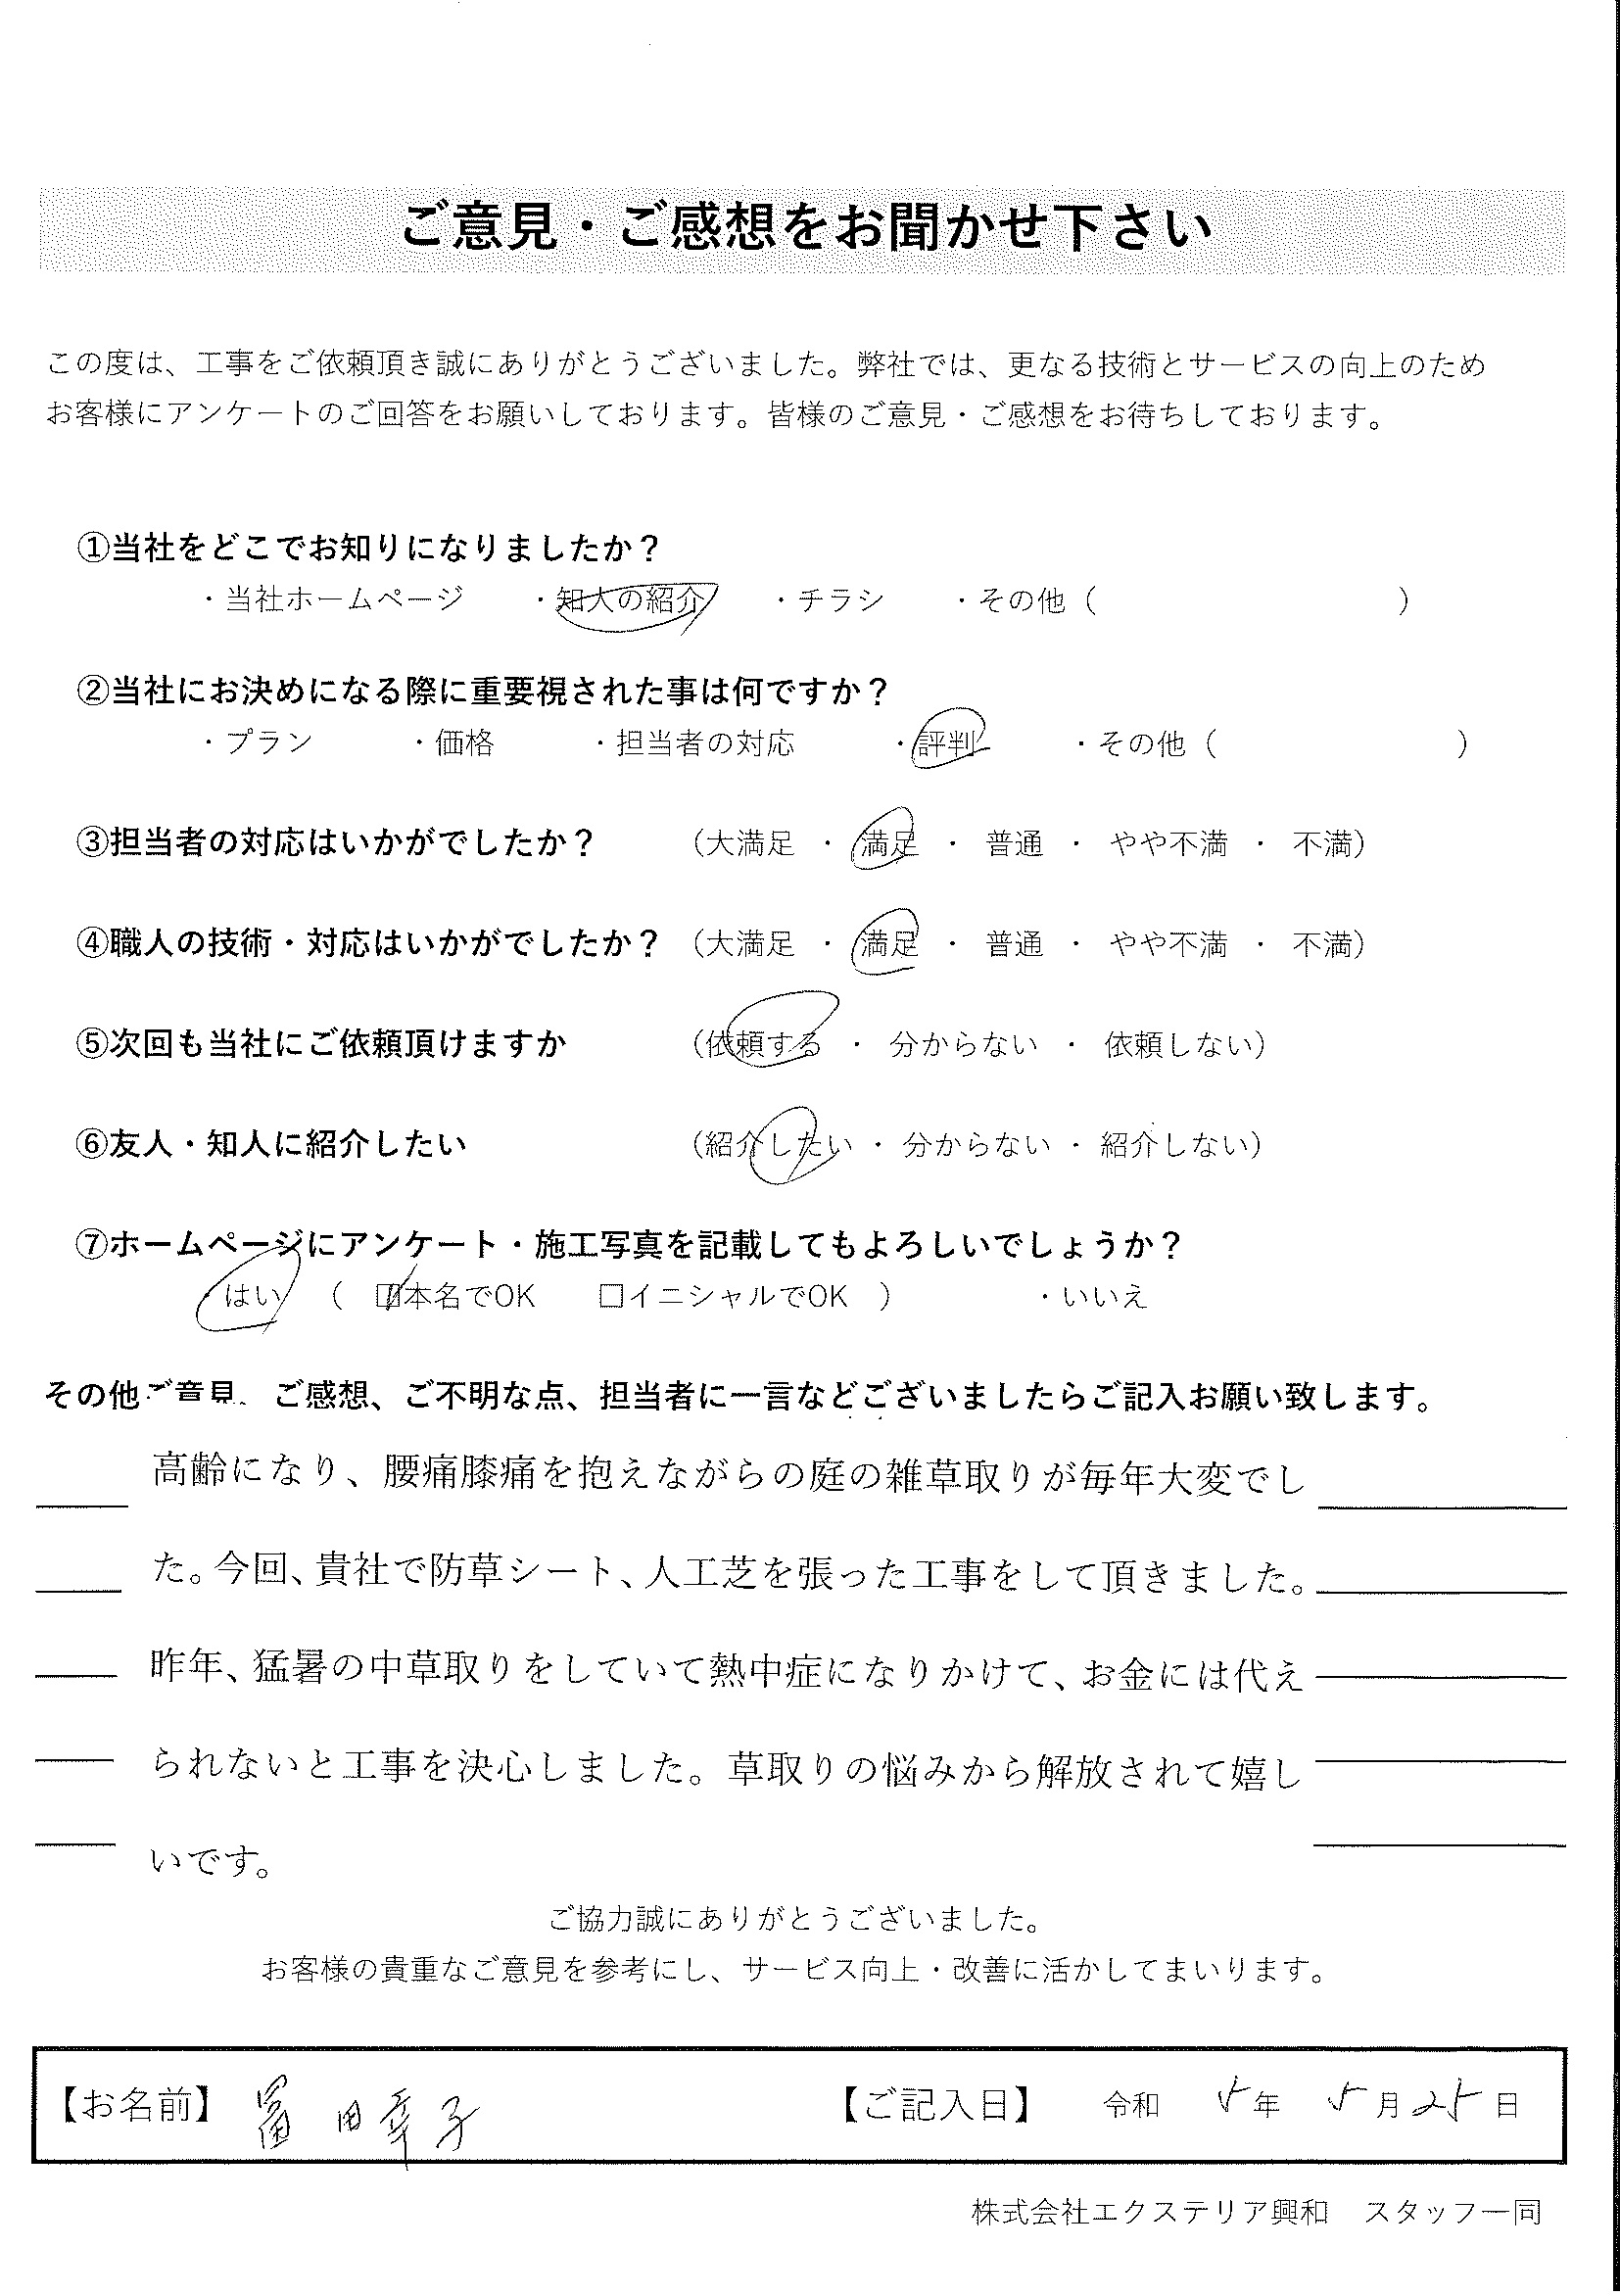 ご意見・ご感想をお聞かせ下さい
この度は、工事をご依頼頂き誠にありがとうございました。弊社では、更なる技術とサービスの向上のため
お客様にアンケートのご回答をお願いしております。皆様のご意見・ご感想をお待ちしております。
①当社をどこでお知りになりましたか？
・当社ホームページ ・知人の紹介 ・チラシ ・その他（ ）
②当社にお決めになる際に重要視された事は何ですか？
・プラン ・価格 ・担当者の対応 ・評判 ・その他（ ）
③担当者の対応はいかがでしたか？ （大満足 ・ 満足 ・ 普通 ・ やや不満 ・ 不満）
④職人の技術・対応はいかがでしたか？ （大満足 ・ 満足 ・ 普通 ・ やや不満 ・ 不満）
⑤次回も当社にご依頼頂けますか （依頼する ・ 分からない ・ 依頼しない）
⑥友人・知人に紹介したい （紹介したい ・ 分からない ・ 紹介しない）
⑦ホームページにアンケート・施工写真を記載してもよろしいでしょうか？
はい （ ☑本名でOK □イニシャルでOK ） ・いいえ
その他ご意見、ご感想、ご不明な点、担当者に一言などございましたらご記入お願い致します。
高齢になり、腰痛膝痛を抱えながらの庭の雑草取りが毎年大変でし
た。今回、貴社で防草シート、人工芝を張った工事をして頂きました。
昨年、猛暑の中草取りをしていて熱中症になりかけて、お金には代え
られないと工事を決心しました。草取りの悩みから解放されて嬉し
いです。
ご協力誠にありがとうございました。
お客様の貴重なご意見を参考にし、サービス向上・改善に活かしてまいります。
【お名前】 冨田幸子 【ご記入日】 令和 5年 5月25日
株式会社エクステリア興和 スタッフ一同